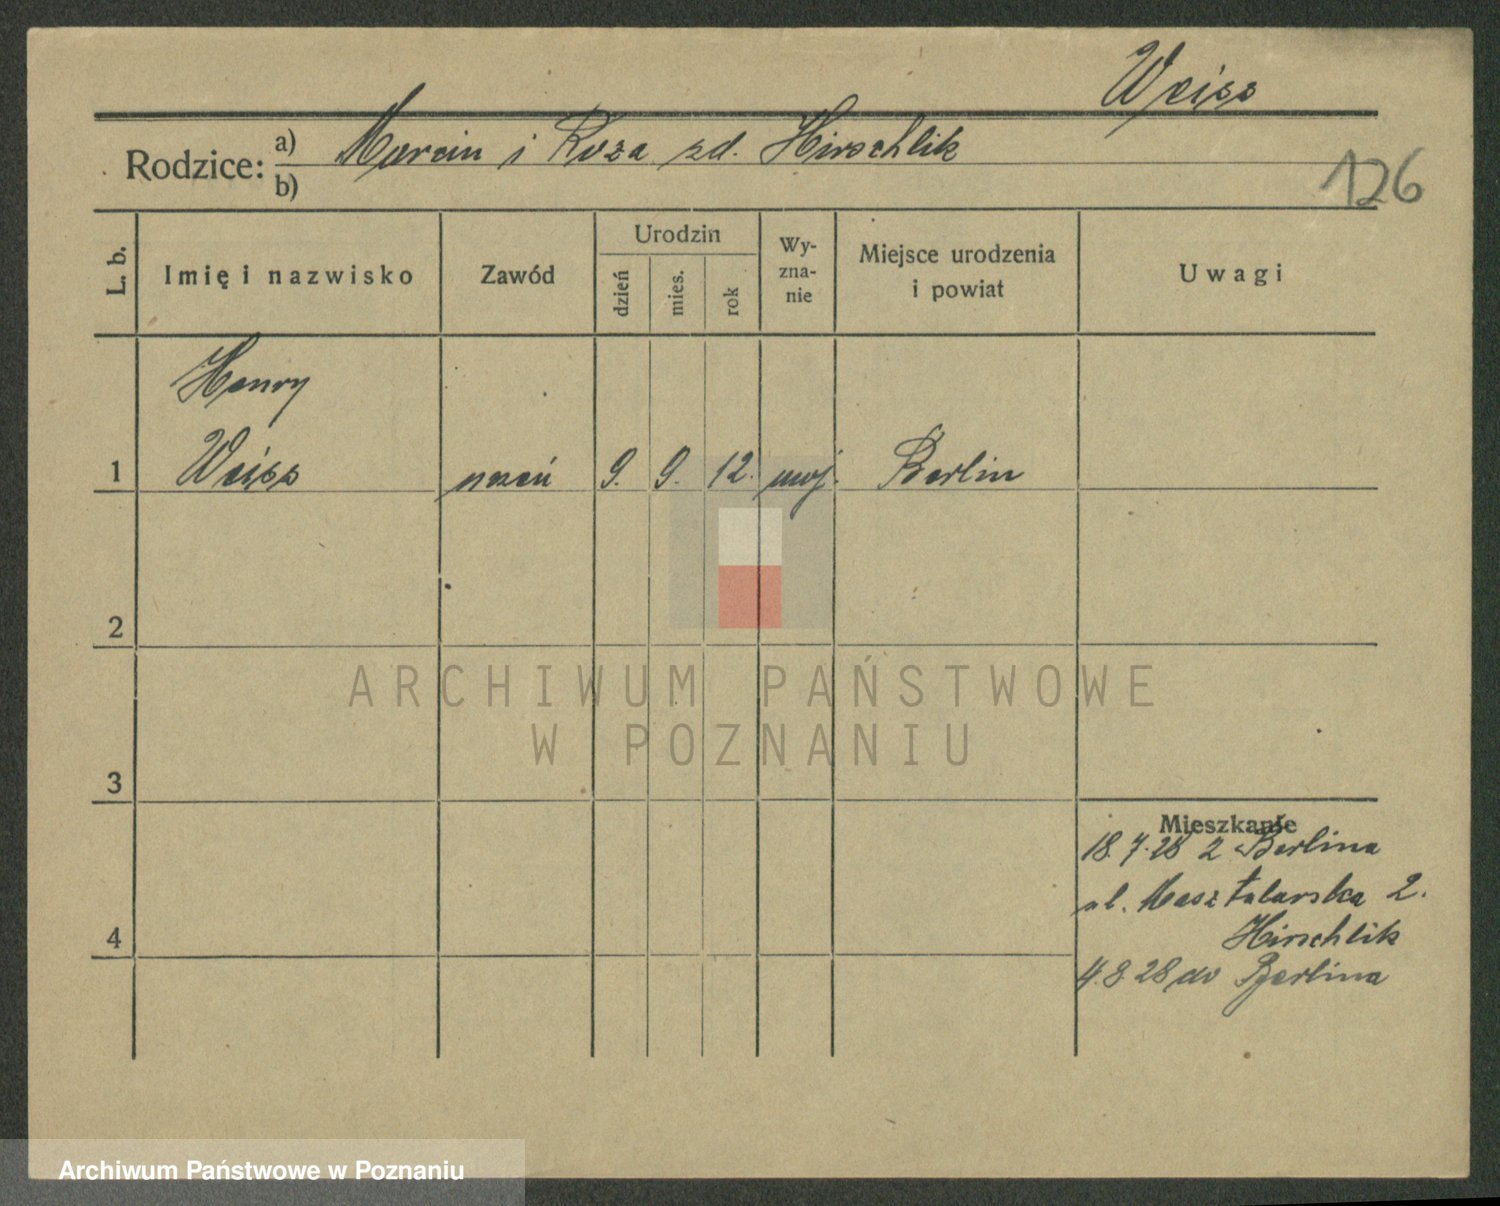 Weiss
Rodzice: a) Marcin i Roza zd. Hirschlik
b)
126
L. b. Imię i nazwisko Zawód Urodzin dzień mies. rok Wy-zna-nie Miejsce urodzenia i powiat Uwagi
Henry
1 Weiss uczeń 9. 9. 12. moj. Berlin
2
3
Mieszkanie
18.7.28 z Berlina
ul. Masztalarska 2.
4 Hirschlik
4.8.28 do Berlina
ARCHIWUM PAŃSTWOWE
W POZNANIU
Archiwum Państwowe w Poznaniu